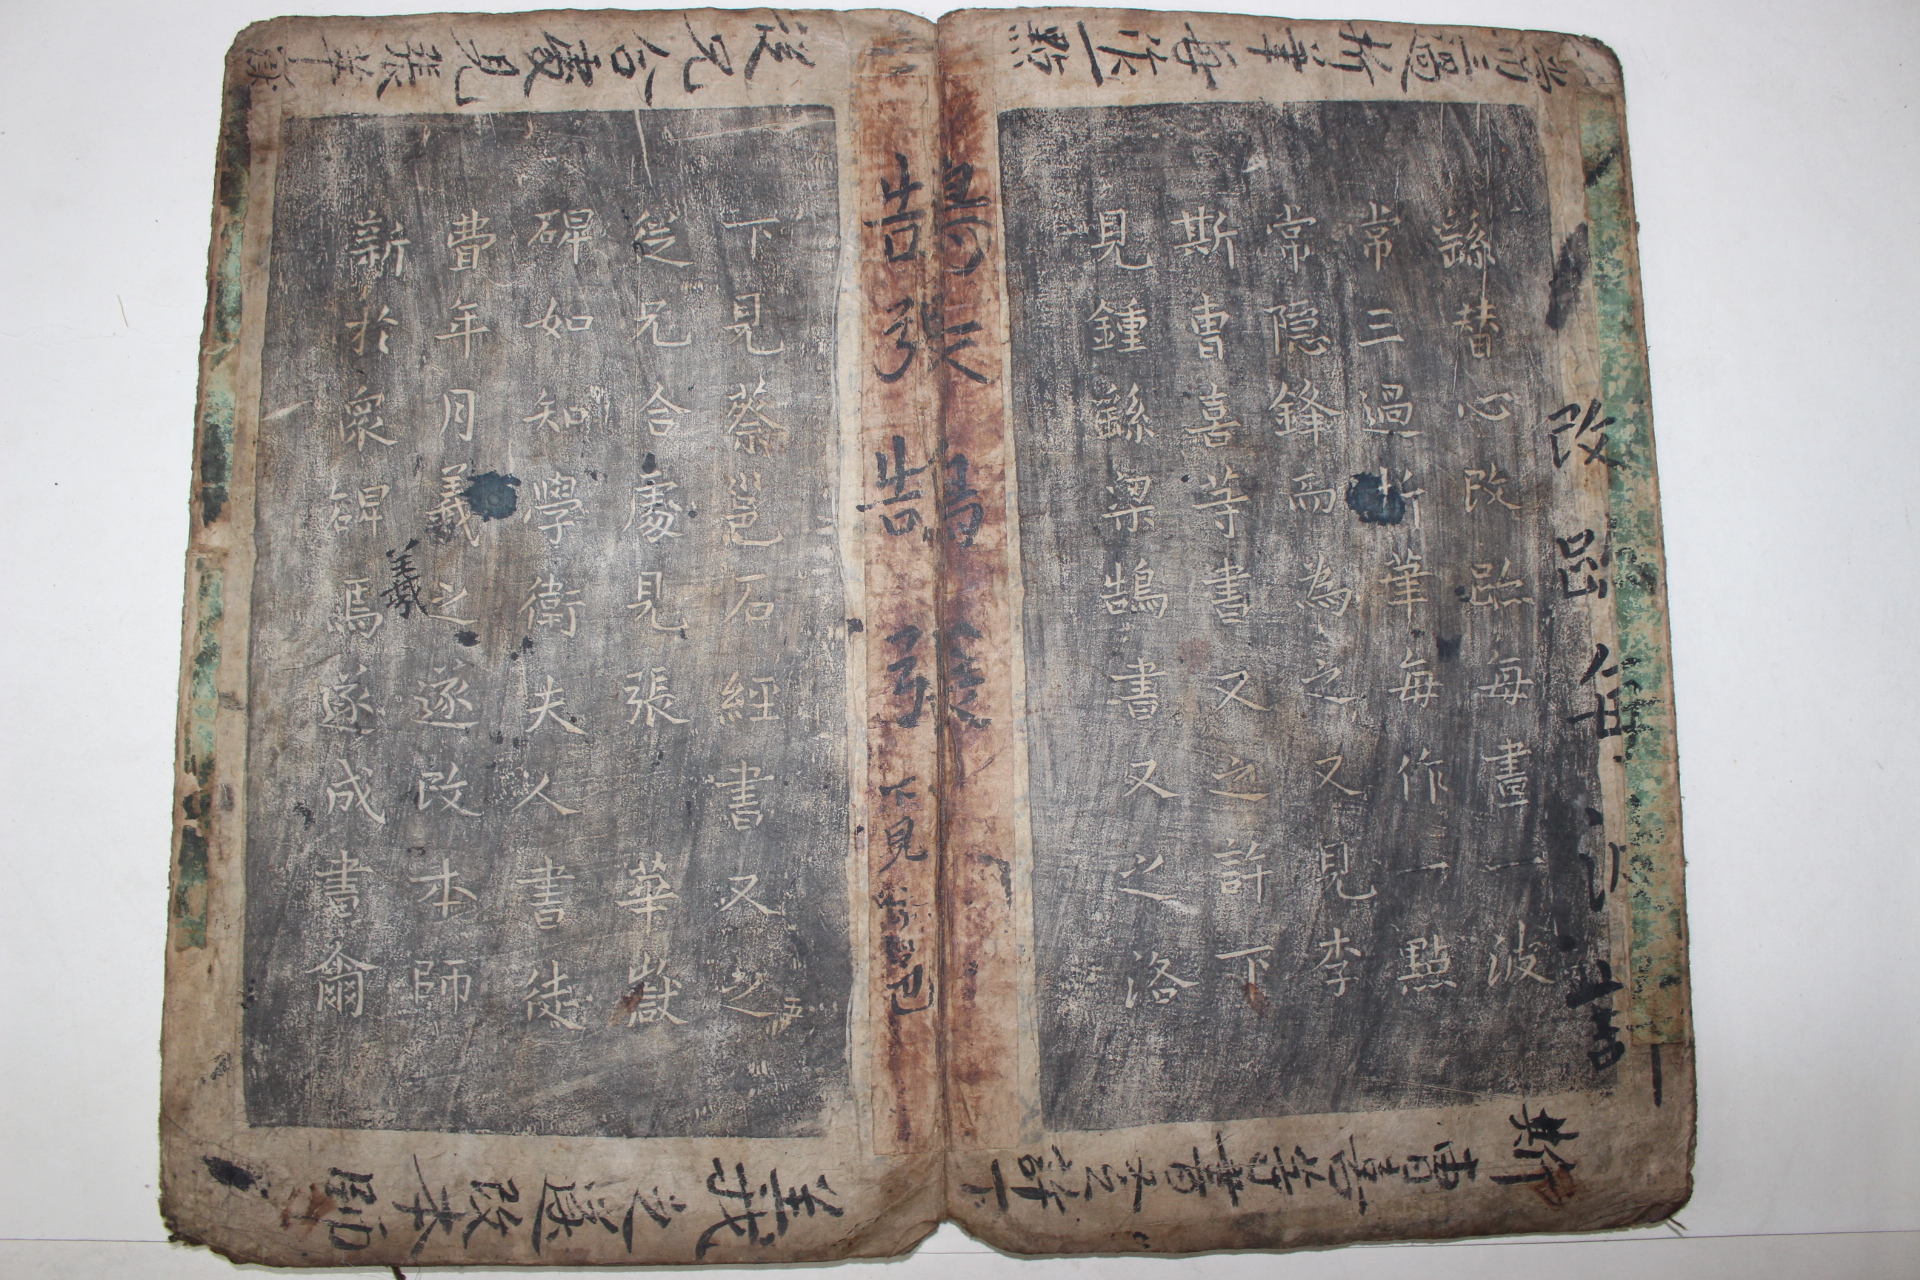 常三過折筆每作一點
繇替心改跡每畫一波
常三過折筆每作一點
常隱鋒而為之又見李
斯曹喜等書又之許下
見鍾繇梁鵠書又之洛
斯曹喜等書又之許下
從兄合處見張華嶽
下見蔡邕石經書又之
從兄合處見張華嶽
碑如知學衛夫人書徒
費年月羲之遂改本師
羲
新於衆碑焉遂成書爾
羲之遂改本師